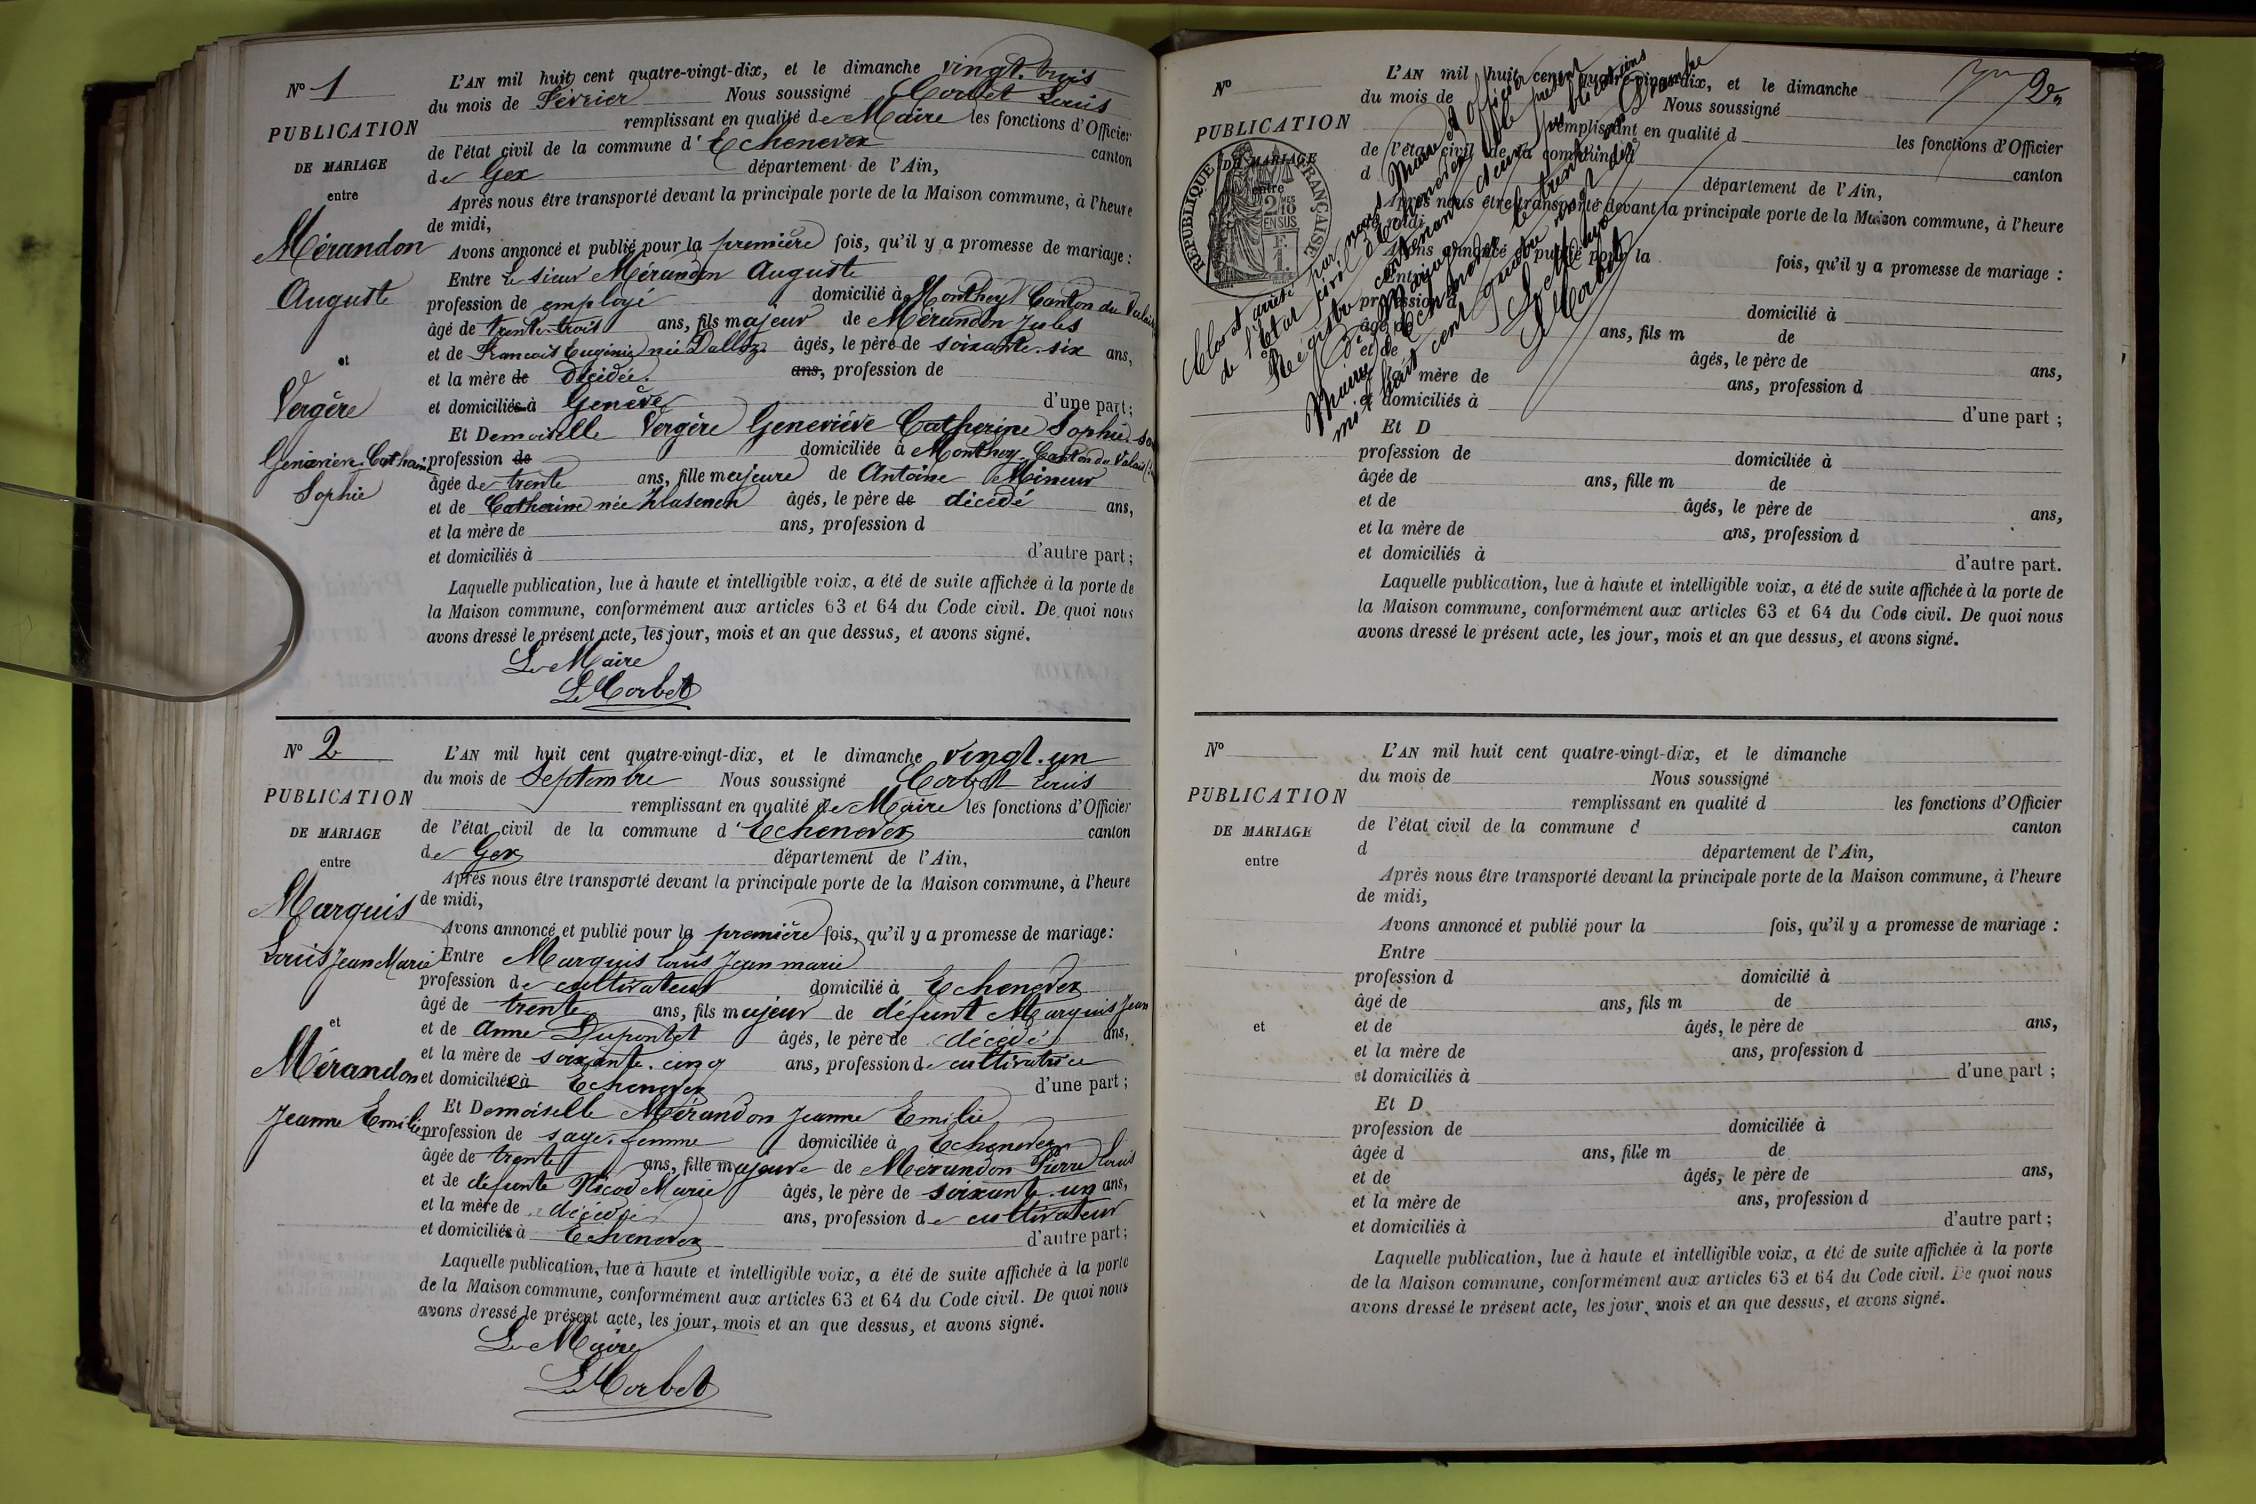 Nº 1
PUBLICATION
DE MARIAGE
entre
Mérandon
Auguste
et
Vergère
Genevieve Catherine
Sophie
L'AN mil huit cent quatre-vingt-dix, et le dimanche vingt-trois
du mois de Février Nous soussigné Corbet Louis
remplissant en qualité de Maire les fonctions d'Officier
de l'état civil de la commune d'Echenevex canton
de Gex département de l'Ain,
Après nous être transporté devant la principale porte de la Maison commune, à l'heure
de midi,
Avons annoncé et publié pour la première fois, qu'il y a promesse de mariage :
Entre le sieur Mérandon Auguste
profession de employé domicilié à Monthey Canton du Valais
âgé de trente-trois ans, fils majeur de Mérandon Jules
et de Francois Eugénie née Dalloz âgés, le père de soixante-six ans,
et la mère de Décédée. ans, profession de
et domiciliés à Genève d'une part ;
Et Demoiselle Vergère Geneviève Catherine Sophie
profession de domiciliée à Monthey, Canton du Valais
âgée de trente ans, fille majeure de Antoine Mineur
et de Catherine née âgés, le père de décédé ans,
et la mère de ans, profession d
et domiciliés à d'autre part ;
Laquelle publication, lue à haute et intelligible voix, a été de suite affichée à la porte de
la Maison commune, conformément aux articles 63 et 64 du Code civil. De quoi nous
avons dressé le présent acte, les jour, mois et an que dessus, et avons signé.
Le Maire
Ls Corbet
Nº 2
PUBLICATION
DE MARIAGE
entre
Marquis
Louis Jean Marie
et
Mérandon
Jeanne Emilie
L'AN mil huit cent quatre-vingt-dix, et le dimanche vingt-un
du mois de Septembre Nous soussigné Corbet Louis
remplissant en qualité de Maire les fonctions d'Officier
de l'état civil de la commune d'Echenevex canton
de Gex département de l'Ain,
Après nous être transporté devant la principale porte de la Maison commune, à l'heure
de midi,
Avons annoncé et publié pour la première fois, qu'il y a promesse de mariage :
Entre Marquis Louis Jean marie
profession de cultivateur domicilié à Echenevex
âgé de trente ans, fils majeur de défunt Marquis Jean
et de Anne Dupontet âgés, le père de décédé ans,
et la mère de soixante-cinq ans, profession de cultivatrice
et domiciliée à Echenevex d'une part ;
Et Demoiselle Mérandon Jeanne Emilie
profession de sage-femme domiciliée à Echenevex
âgée de trente ans, fille majeure de Mérandon Pierre Louis
et de défunte Nicod Marie âgés, le père de soixante-un ans,
et la mère de décédée ans, profession de cultivateur
et domiciliés à Echenevex d'autre part ;
Laquelle publication, lue à haute et intelligible voix, a été de suite affichée à la porte
de la Maison commune, conformément aux articles 63 et 64 du Code civil. De quoi nous
avons dressé le présent acte, les jour, mois et an que dessus, et avons signé.
Le Maire
Ls Corbet
Nº
PUBLICATION
DE MARIAGE
entre
RÉPUBLIQUE FRANÇAISE
2 MES
10
EN SUS
L'AN mil huit cent quatre-vingt-dix, et le dimanche
du mois de Nous soussigné
remplissant en qualité d les fonctions d'Officier
de l'état civil de la commune d canton
d département de l'Ain,
Après nous être transporté devant la principale porte de la Maison commune, à l'heure
de midi,
Avons annoncé et publié pour la fois, qu'il y a promesse de mariage :
Entre
profession d domicilié à
âgé de ans, fils m de
et de âgés, le père de ans,
et la mère de ans, profession d
et domiciliés à d'une part ;
Et D
profession de domiciliée à
âgée de ans, fille m de
et de âgés, le père de ans,
et la mère de ans, profession d
et domiciliés à d'autre part.
Laquelle publication, lue à haute et intelligible voix, a été de suite affichée à la porte de
la Maison commune, conformément aux articles 63 et 64 du Code civil. De quoi nous
avons dressé le présent acte, les jour, mois et an que dessus, et avons signé.
Clos et arrêté par nous Maire et Officier
de l'Etat civil d'Echenevex le présent
Registre contenant deux publications
de Mariage
Mairie d'Echenevex le trente un Décembre
mil huit cent quatre vingt dix
Le Maire
Ls Corbet
Nº
PUBLICATION
DE MARIAGE
entre
et
L'AN mil huit cent quatre-vingt-dix, et le dimanche
du mois de Nous soussigné
remplissant en qualité d les fonctions d'Officier
de l'état civil de la commune d canton
d département de l'Ain,
Après nous être transporté devant la principale porte de la Maison commune, à l'heure
de midi,
Avons annoncé et publié pour la fois, qu'il y a promesse de mariage :
Entre
profession d domicilié à
âgé de ans, fils m de
et de âgés, le père de ans,
et la mère de ans, profession d
et domiciliés à d'une part ;
Et D
profession de domiciliée à
âgée d ans, fille m de
et de âgés, le père de ans,
et la mère de ans, profession d
et domiciliés à d'autre part ;
Laquelle publication, lue à haute et intelligible voix, a été de suite affichée à la porte
de la Maison commune, conformément aux articles 63 et 64 du Code civil. De quoi nous
avons dressé le présent acte, les jour, mois et an que dessus, et avons signé.